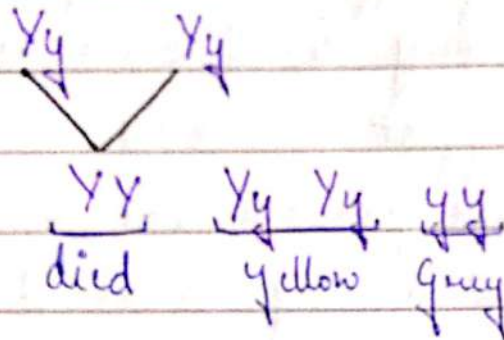 Yy Yy
YY Yy Yy yy
died yellow grey